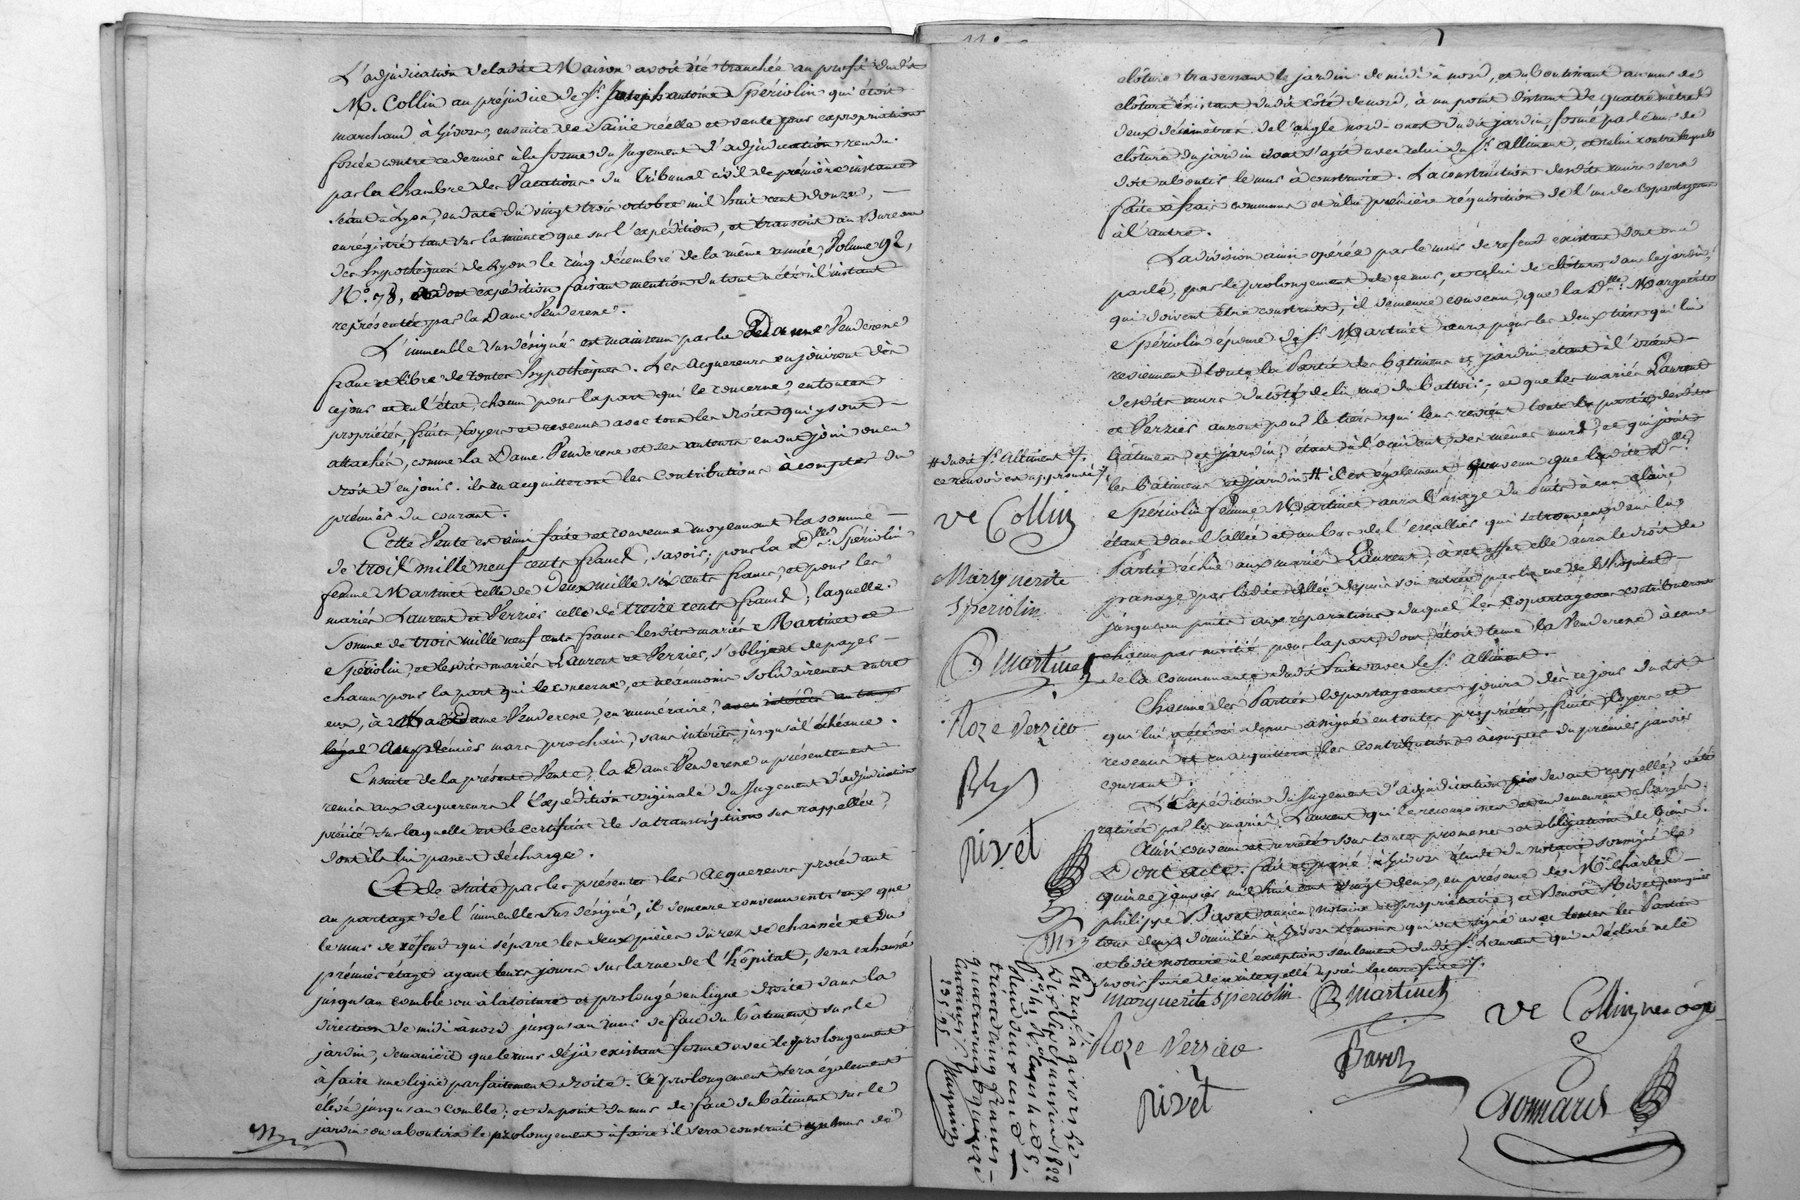 L'adjudication de ladite Maison avoit été tranchée au profit dudit
M. Collin au préjudice de Sr. Joseph antoine Spériolin qui étoit
marchand à Givors, ensuite de Saisie réelle et vente par expropriation
forcée contre ce dernier à la forme du Jugement d'adjudication rendu
par la Chambre des Vacations du Tribunal civil de première instance
séant à Lyon, en date du vingt trois octobre mil huit cent douze,
enregistré tant sur la minute que sur l'expédition, et transcrit au Bureau
des hypothèques de Lyon le cinq décembre de la même année, Volume 92,
No. 78, expédition faisant mention du tout a été à l'instant
représentée par la Dame Venderesse.
L'immeuble sus désigné est maintenu par la Dame Venderesse
franc et libre de toutes hypothèques. Les acquereurs en jouiront dès
ce jour et en l'état, chacun pour la part qui le concerne, en toutes
propriétés, fruits, loyers et revenus avec tous les droits qui y sont
attachés, comme la Dame Venderesse et ses auteurs en ont joui ou eu
droit d'en jouir. ils en acquitteront les contributions à compter du
premier du courant.
Cette Vente est ainsi faite et convenue moyennant la somme
de trois mille neuf cents francs, savoir; pour la Dlle. Spériolin
femme Martinet celle de Deux mille six cents francs, et pour les
mariés Laurent et Verzier celle de treize cents francs, laquelle
somme de trois mille neuf cents francs lesdits mariés Martinet et
Spériolin, et lesdits mariés Laurent et Verzier, s'obligent de payer
chacun pour la part qui le concerne, et néanmoins solidairement entre
eux, à ladite Dame Venderesse, en numéraire, avec intérêts au taux
légal au premier mars prochain, sans intérêts jusqu'à l'échéance.
Ensuite de la présente Vente, la Dame Venderesse a présentement
remis aux acquereurs l'Expédition originale du Jugement d'adjudication
précité sur laquelle est le certificat de sa transcription sus rappellée,
dont ils lui passent décharge.
Et de suite par les présentes les acquereurs procédant
au partage de l'immeuble sus désigné, il demeure convenu entr'eux que
le mur de refend qui sépare les deux pièces du rez de chaussée et du
premier étage ayant leurs jours sur la rue de l'hôpital, sera exhaussé
jusqu'au comble ou à la toiture et prolongé en ligne droite dans la
direction de midi à nord jusqu'au mur de face du bâtiment, sur le
jardin, de manière que le mur déjà existant forme avec le prolongement
à faire une ligne parfaitement droite. Ce prolongement sera également
élevé jusqu'au comble; et du point du mur de face du bâtiment sur le
jardin où aboutira le prolongement à faire il sera construit un mur de
clôture traversant le jardin de midi à nord, et aboutissant au mur de
clôture existant dudit côté de nord, à un point distant de quatre mètres
deux décimètres de l'angle nord-ouest dudit jardin, formé par le mur de
clôture du jardin dont s'agit avec celui du Sr. Alliment, et celui contre lequel
doit aboutir le mur à construire. La construction desdits murs sera
faite à frais communs et à la première réquisition de l'un des copartageans
à l'autre.
La division ainsi opérée par le mur de refend existant dont on a
parlé, par le prolongement de ce mur, et celui de clôture dans le jardin,
qui doivent être construits, il demeure convenu, que la Dlle. Margueritte
Spériolin épouse du Sr. Martinet aura pour les deux tiers qui lui
reviennent toute la Partie des bâtimens et jardin, étant à l'orient
desdits murs du côté de la rue de Battoir, et que les mariés Laurent
et Verzier auront pour le tiers qui leur revient toute la partie desdits
bâtimens et jardin, étant à l'occident des mêmes murs, et qui joint
les bâtimens et jardin # il est également convenu que ladite Dlle.
Spériolin femme Martinet aura l'usage du Puits à eau claire
étant dans l'allée et au bas de l'escallier qui se trouvent dans la
Partie échue aux mariés Laurent, à cet effet elle aura le droit de
passage par ladite allée depuis son entrée par la rue de l'hôpital
jusqu'au puits aux réparations duquel les copartageans contribueront
chacun par moitié, pour la part dont étoit tenue la Venderesse à cause
de la communauté dudit Puits avec le Sr. Alliment.
Chacune des Parties copartageantes jouira dès ce jour du lot
qui lui a été ci dessus assigné en toutes propriétés, fruits, loyers et
revenus et en acquittera les contributions à compter du premier janvier
courant.
L'Expédition du Jugement d'adjudication ci devant rappellé, a été
retirée par les mariés Laurent qui le reconnoissent et en demeurent chargés.
Ainsi convenu et arrêté sous toutes promesses et obligations de biens.
Dont acte. fait et passé à Givors étude du notaire soussigné le
quinze janvier mil huit cent vingt deux, en présence de Mr. Charles
philippe Bavet ancien notaire et propriétaire, et Benoît Rivet
tous deux domiciliés à Givors témoins qui ont signé avec toutes les Parties
et ledit notaire à l'exception seulement dudit Sr. Laurent qui a déclaré ne le
savoir faire de ce interpellé après lecture faite.
# dudit Sr. Alliment
ce renvoi est approuvé
ve Collin
Marguerite
Speriolin
B Martinet
Roze Verzieo
rivet
Marguerite Speriolin B Martinet ve Collin
Roze Verzieo
rivet
Bonnard
Enreg. à givors le
dix sept janvier 1822